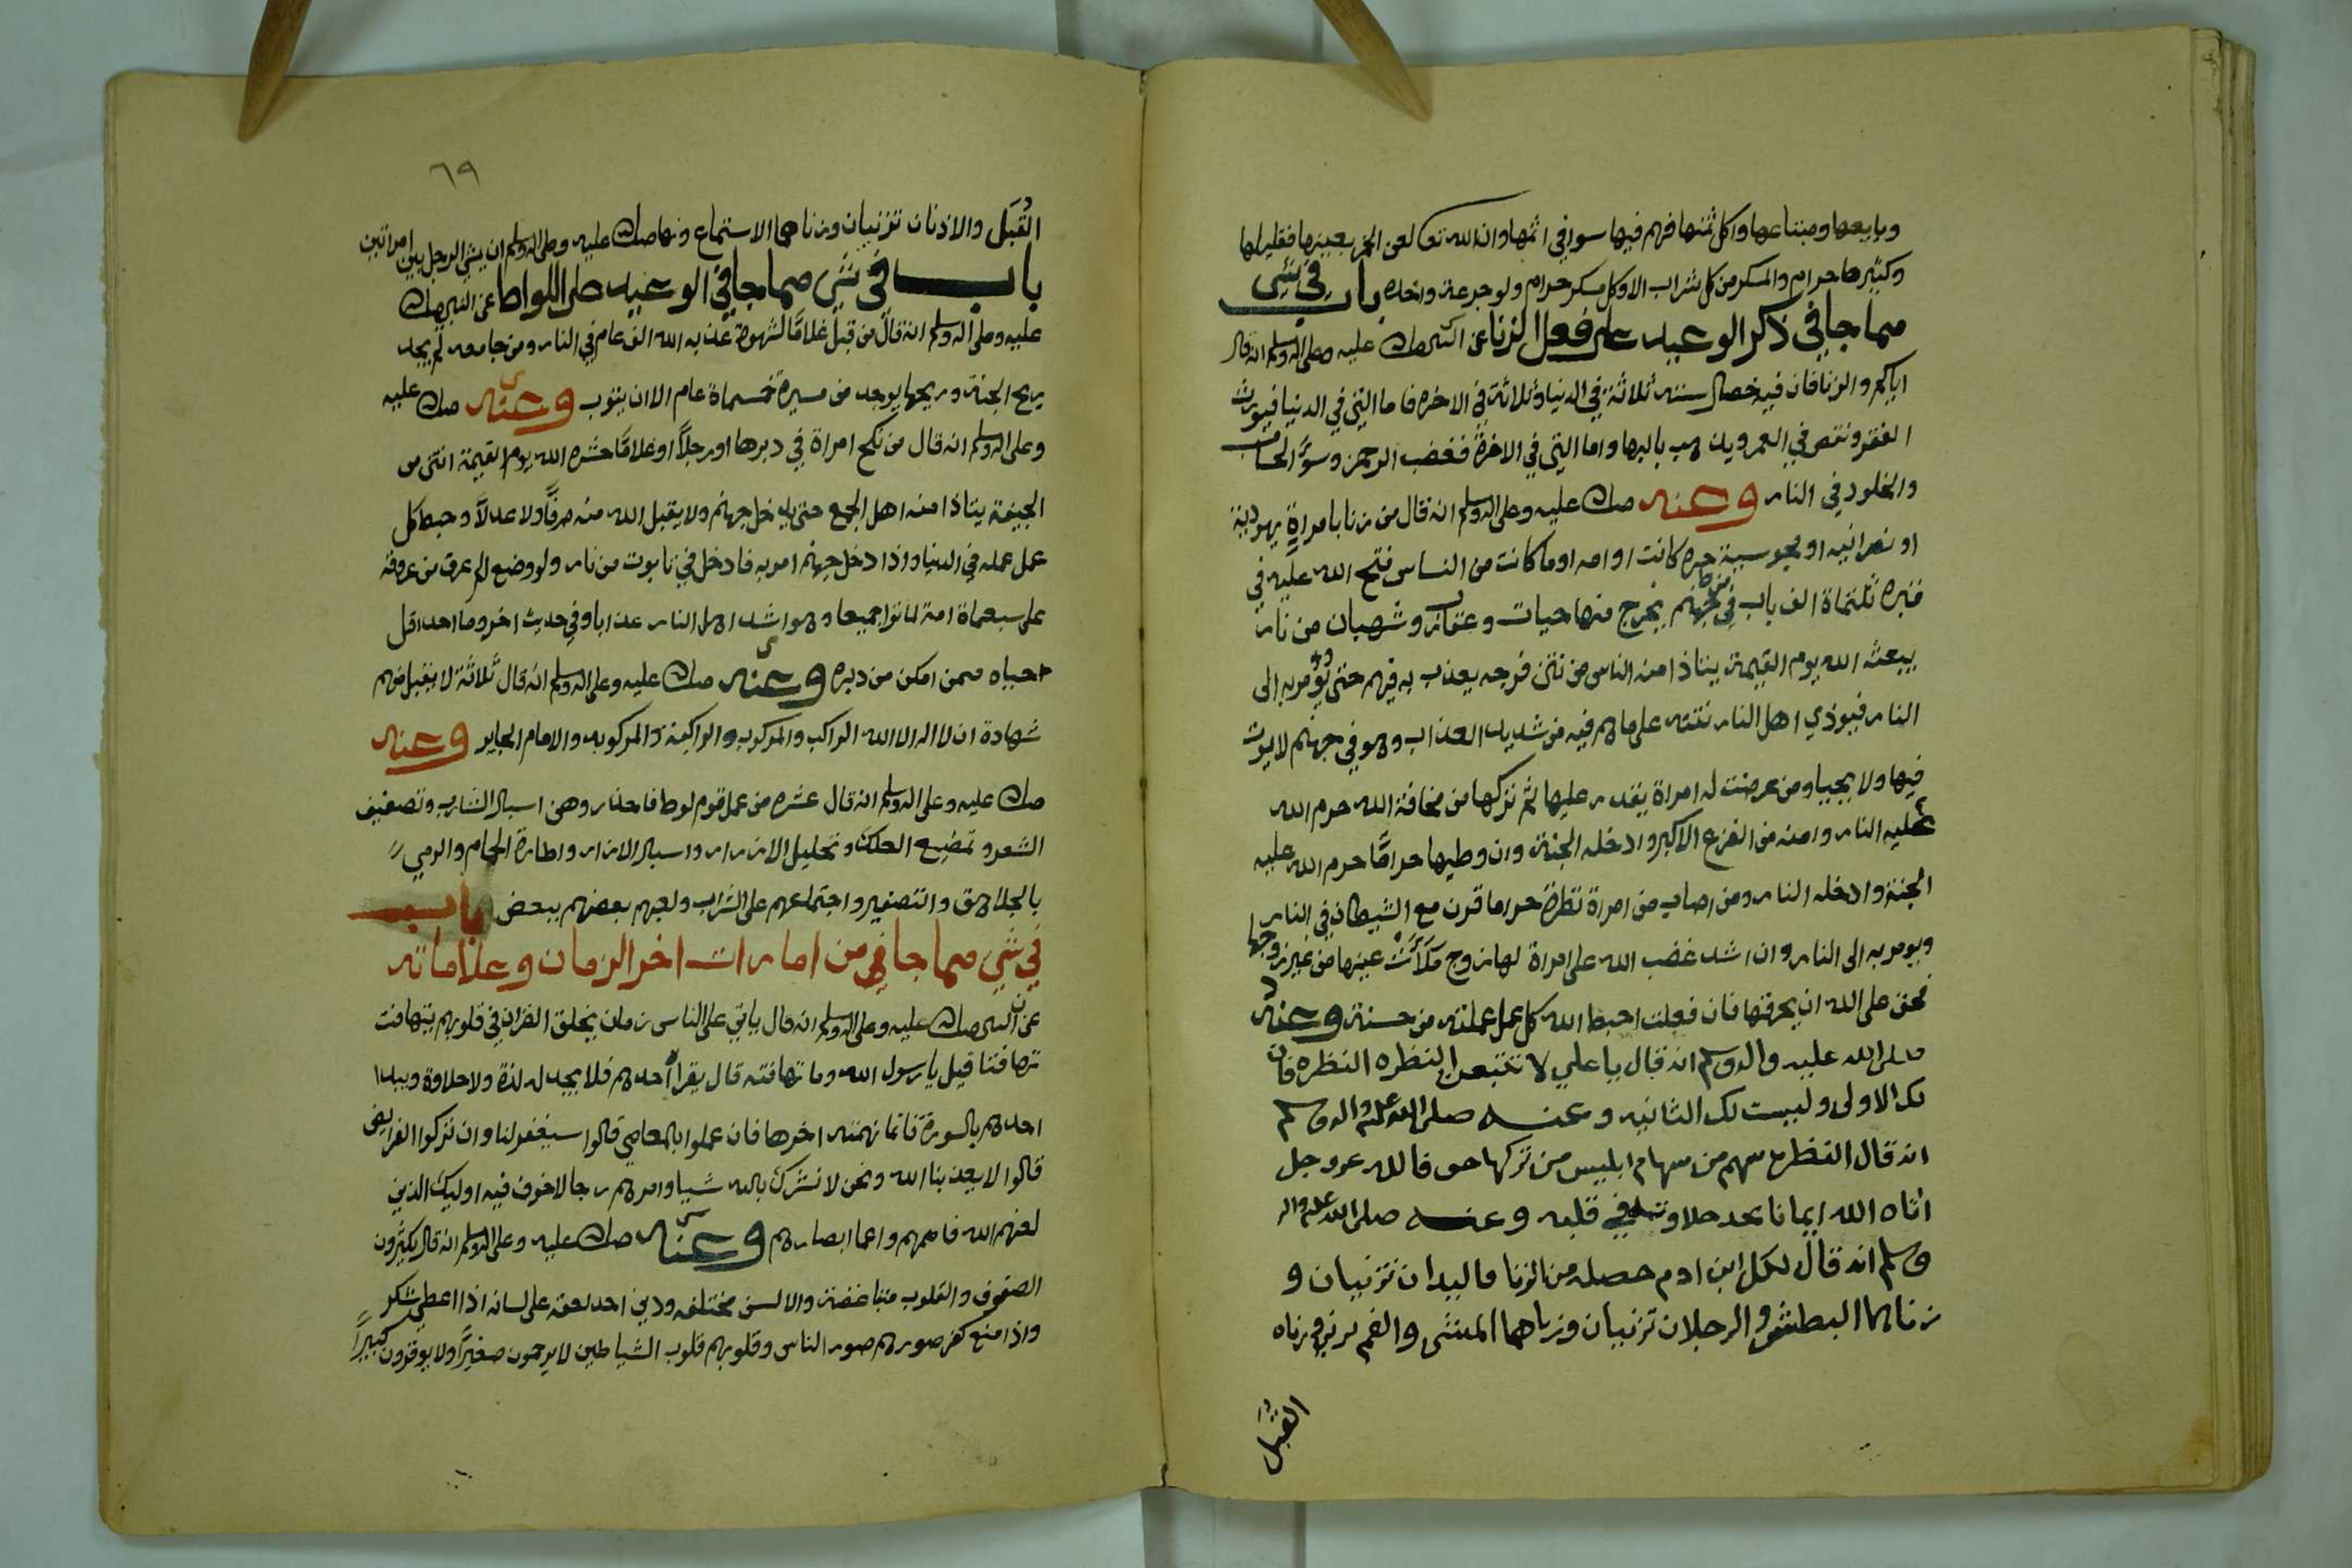 وبايعها ومبتاعها واكل ثمنها فهم فيها سوا في اثمها وان الله تعا لعن الخمر بعينها فقليلها
وكثيرها حرام والمسكر من كل شراب الا وكل مسكر حرام ولو جرعة واحده باب في شي
مما جا في ذكر الوعيد على فعل الزنا عن النبي صلى الله عليه وعلى اله وسلم انه قال
اياكم والزنا فان فيه خصال سته ثلاثة في الدنيا وثلاثة في الاخره فاما التي في الدنيا فيورث
الفقر وينقص في العمر ويذهب بالبها واما التي في الاخرة فغضب الرحمن وسوء الحساب
والخلود في النار وعنه صلى الله عليه وعلى اله وسلم انه قال من زنا بامراة يهودية
او نصرانيه او مجوسية حره كانت او امه او ما كانت من الناس فتح الله عليه في
قبره ثلثماة الف باب من جهنم يخرج منها حيات وعقارب وشهبان من نار
يبعثه الله يوم القيمة يتاذا منه الناس من نتن فرجه يعذب به فيهم حتى يؤمر به الى
النار فيوذي اهل النار نتنه على ماهم فيه من شديد العذاب وهو في جهنم لا يموت
فيها ولا يحيا ومن عرضت له امراة يقدر عليها ثم تركها من مخافة الله حرم الله
عليه النار وامنه من الفزع الاكبر وادخله الجنة وان وطيها حرامًا حرم الله عليه
الجنة وادخله النار ومن اصاب من امراة نظرة حراما قرن مع الشيطان في النار
ويومر به الى النار وان اشد غضب الله على امراة لها زوج ملأت عينها من غير زوجها
فحق على الله ان يحرقها فان فعلت احبط الله كل عمل عملته من حسنة وعنه
صلى الله عليه واله وسلم انه قال يا علي لا تتبعن النظره النظره فان
لك الاولى وليست لك الثانيه وعنه صلى الله عليه واله وسلم
انه قال النظره سهم من سهام ابليس من تركها خوفا لله عز وجل
اتاه الله ايمانا يجد حلاوته في قلبه وعنه صلى الله عليه واله
وسلم انه قال لكل ابن ادم حصله من الزنا فاليدان تزنيان و
زناهما البطش والرجلان تزنيان وزناهما المشي والفم يزني وزناه
القُبَل
٦٩
القُبَل والاذنان تزنيان وزناهما الاستماع ونها صلى الله عليه وعلى اله وسلم ان يمشي الرجل بين امراتين
باب في شي مما جا في الوعيد على اللواط عن النبي صلى الله
عليه وعلى اله وسلم انه قال من قبل غلامًا لشهوة عذبه الله الف عام في النار ومن جامعه لم يجد
ريح الجنة وريحها يوجد من مسيرة خمسماة عام الا ان يتوب وعنه صلى الله عليه
وعلى اله وسلم انه قال من نكح امراة في دبرها او رجلاً او غلامًا حشره الله يوم القيمة انتن من
الجيفة يتاذا منه اهل الجمع حتى يدخل جهنم ولا يقبل الله منه صرفًا ولا عدلاً وحبط كل
عمل عمله في الدنيا واذا دخل جهنم امر به فادخل في تابوت من نار ولو وضع الم عرق من عروقه
على سبعماة امة لماتوا جميعا وهو اشد اهل النار عذابا وفي حديث اخر وما احد اقل
حياه ممن امكن من دبره وعنه صلى الله عليه وعلى اله وسلم انه قال ثلاثة لا يقبل منهم
شهادة ان لا اله الا الله الراكب والمركوب والراكبة والمركوبه والامام الجاير وعنه
صلى الله عليه وعلى اله وسلم انه قال عشره من عمل قوم لوط فاحذروهن اسبال الشارب وتصفيف
الشعر وتمضيع العلك وتحليل الازرار واسبال الازار واطارة الحمام والرمي
بالجلاهق والتصفير واجتماعهم على الشراب ولعبهم بعضهم ببعض باب
في شي مما جا في من امارات اخر الزمان وعلاماته
عن النبي صلى الله عليه وعلى اله وسلم انه قال ياتي على الناس زمان يخلق القران في قلوبهم يتهافت
تهافتا قيل يا رسول الله وما تهافته قال يقرا أحدهم فلا يجد له لذة ولا حلاوة ويبدا
احدهم بالسورة فانما نهمته اخرها فان عملوا بالمعاصي قالوا سيغفر لنا وان تركوا الفرايض
قالوا لا يعذبنا الله ونحن لا نشرك بالله شيا وامرهم رجا لا خوف فيه اوليك الذين
لعنهم الله فاصمهم واعما ابصارهم وعنه صلى الله عليه وعلى اله وسلم انه قال يكثرون
الصفوف والقلوب متباغضة والالسن مختلفه ودين احد لعقه على لسانه اذا اعطي شكر
واذا منع كفر صورهم صور الناس وقلوبهم قلوب الشياطين لا يرحمون صغيرًا ولا يوقرون كبيرًا